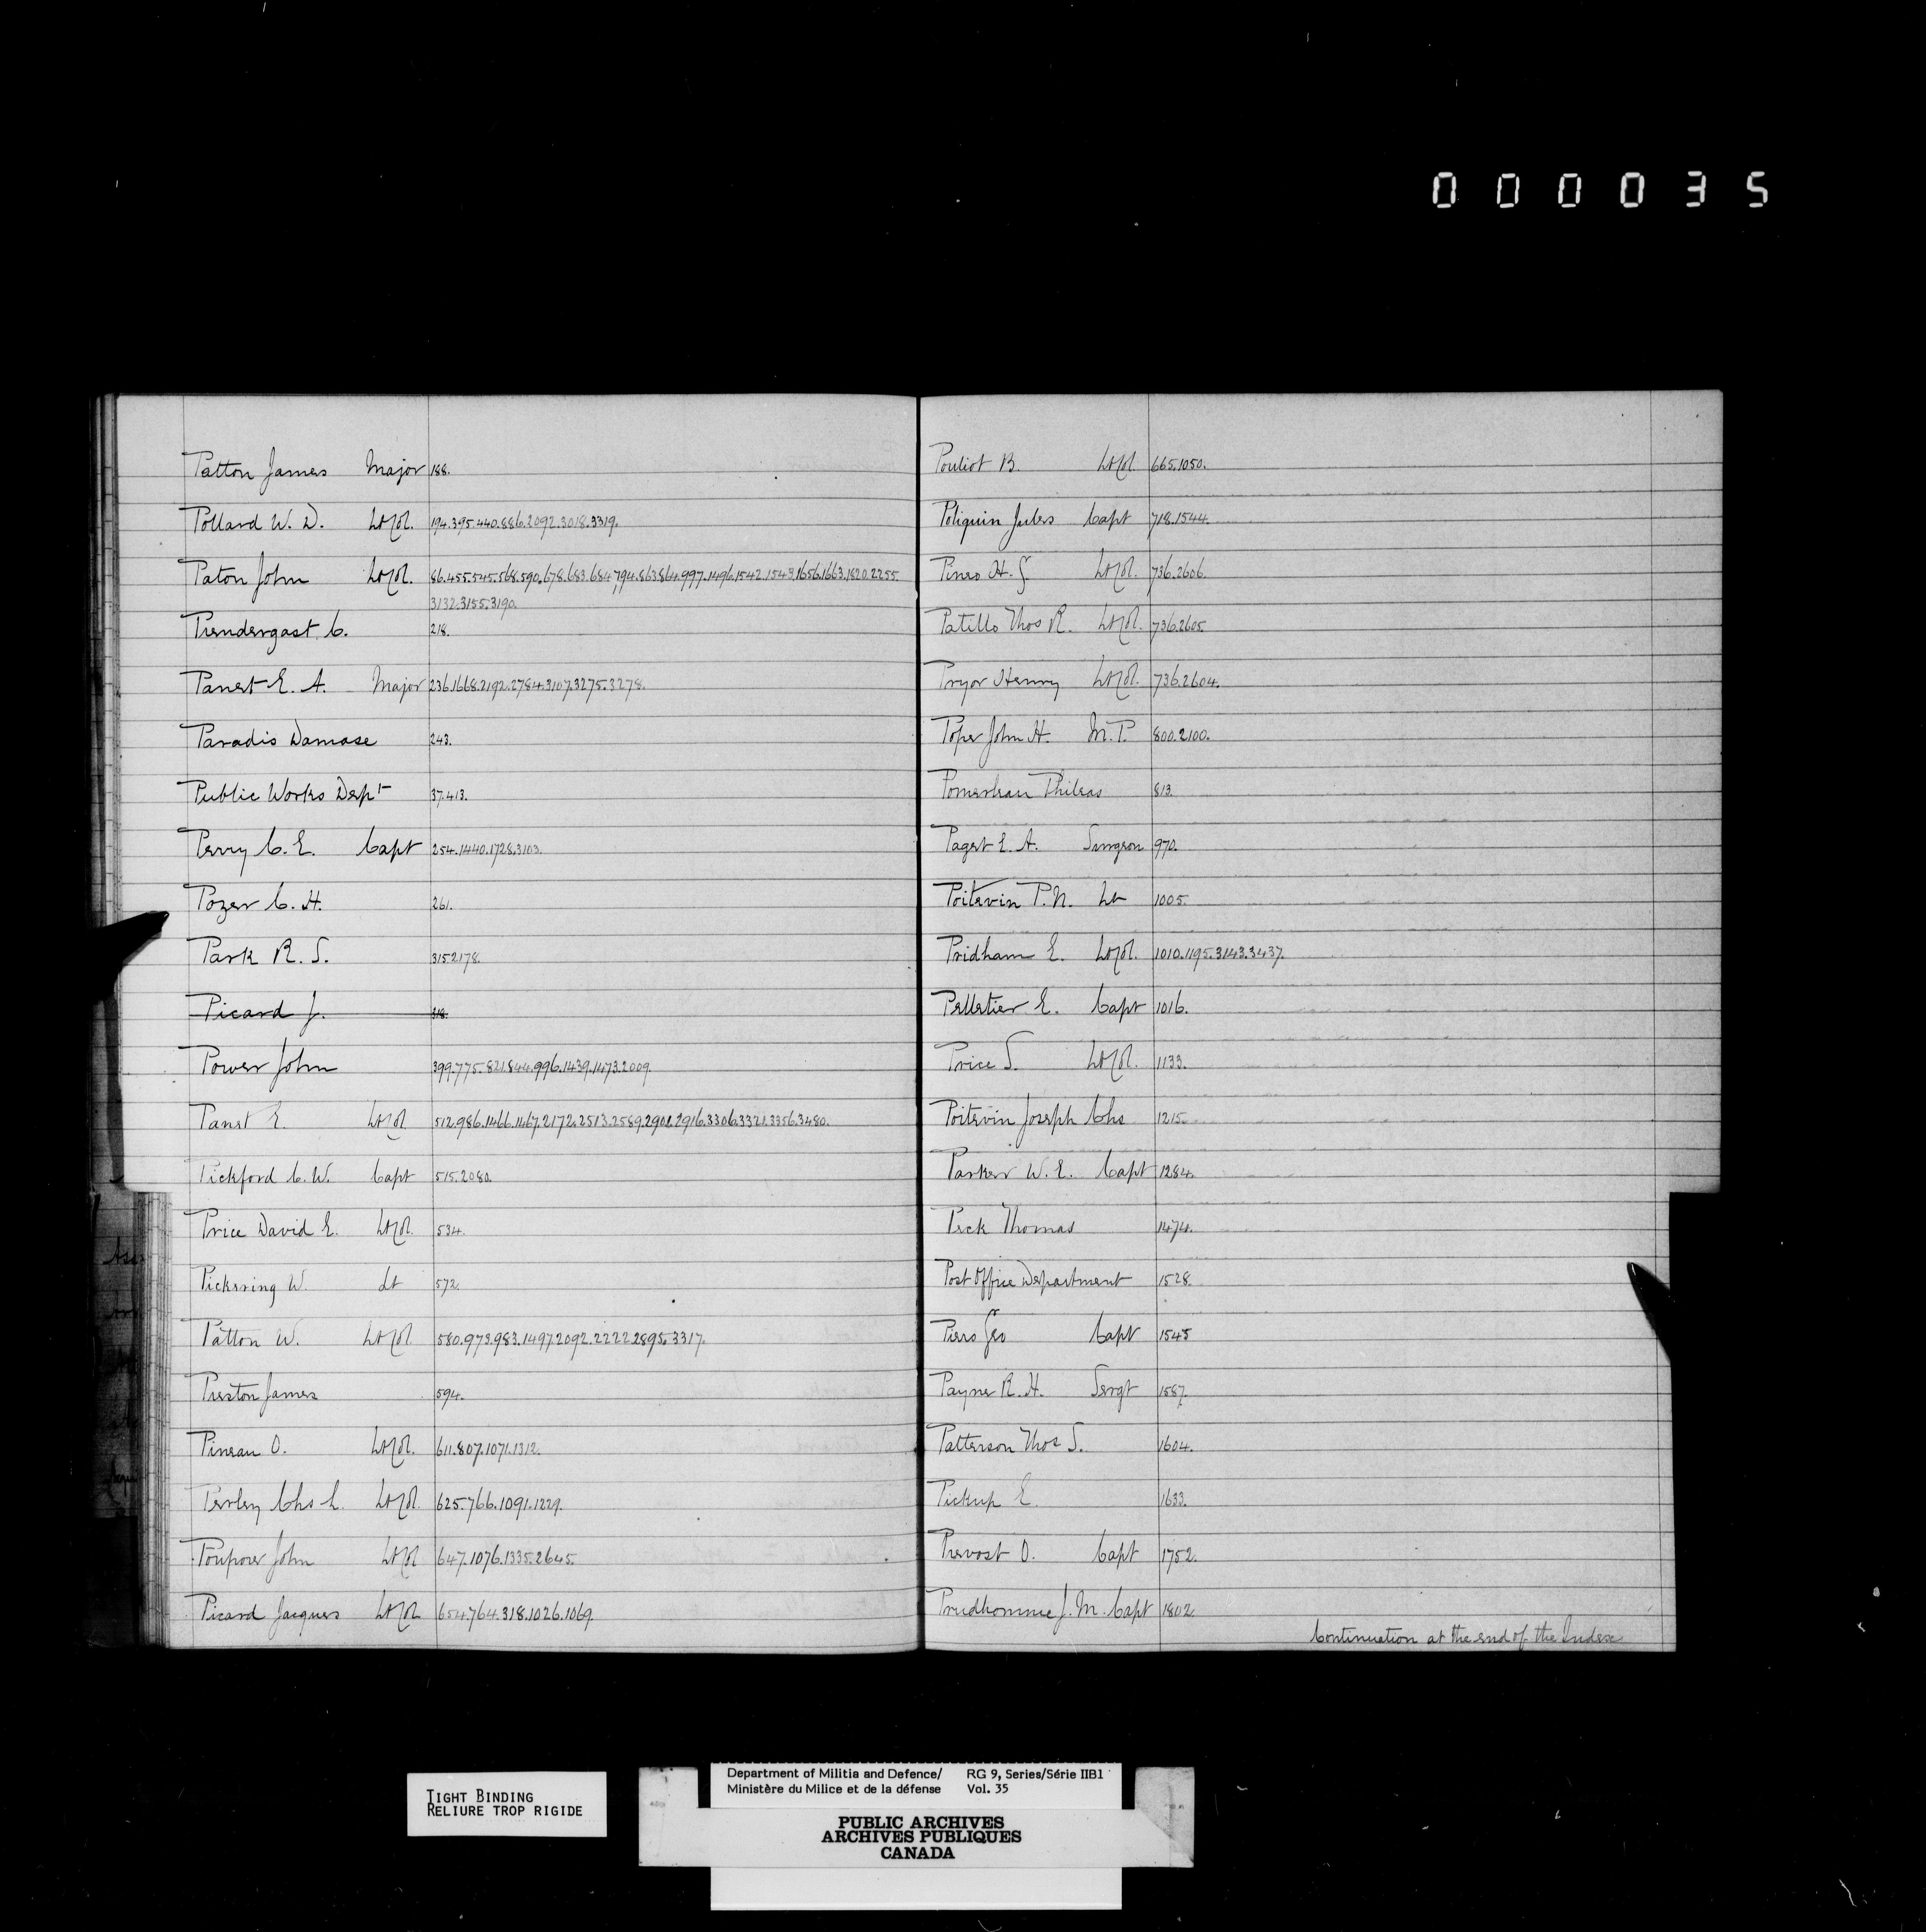 000035
Patton James Major 188.
Pollard W. D. Lt Col. 194.395.440.886.2092.3018.3319.
Paton John Lt Col. 86.455.545.568.590.678.683.684.794.863.864.997.1496.1542.1543.1656.1663.1820.2255.
3132.3155.3190.
Prendergast C. 218.
Panet E. A. Major 236.1668.2192.2784.3107.3275.3278.
Paradis Damase 243.
Public Works Dept 37.413.
Perry C. E. Capt 254.1440.1728.3103.
Pozer C. H. 261.
Park R. S. 315.2178.
Picard J. 318.
Power John 399.775.821.844.996.1439.1473.2009.
Panet E. Lt Col 512.986.1466.1467.2172.2513.2589.2901.2916.3306.3321.3356.3480.
Pickford C. W. Capt 515.2080.
Price David E. Lt Col. 534.
Pickering W. Lt 572.
Patton W. Lt Col 580.973.983.1497.2092.2222.2895.3317.
Preston James 594.
Pineau O. Lt Col. 611.807.1071.1312.
Perley Chs L. Lt Col. 625.766.1091.1229.
Poupore John Lt Col 647.1076.1335.2645.
Picard Jacques Lt Col 654.764.318.1026.1069.
Pouliot B. Lt Col 665.1050.
Poliquin Jules Capt 718.1544.
H. G. Lt Col. 736.2606.
Patillo Thos R. Lt Col. 736.2605.
Pryor Henry Lt Col. 736.2604.
Pope John H. M.P. 800.2100.
Pomerleau Phileas 813.
Paget E. A. Surgeon 970.
Poitevin P. N. Lt 1005.
Pridham E. Lt Col. 1010.1195.3143.3437.
Pelletier E. Capt 1016.
Price S. Lt Col. 1133.
Poitevin Joseph Chs 1215.
Parker W. E. Capt 1284.
Peck Thomas 1474.
Post Office Department 1528.
Piers Geo Capt 1545
Payne R. H. Sergt 1587.
Patterson Thos S. 1604.
Pickup E. 1633.
Prevost O. Capt 1752.
Prudhomme J. M. Capt 1802.
Continuation at the end of the Index
TIGHT BINDING
RELIURE TROP RIGIDE
Department of Militia and Defence/ RG 9, Series/Série IIB1
Ministère du Milice et de la défense Vol. 35
PUBLIC ARCHIVES
ARCHIVES PUBLIQUES
CANADA